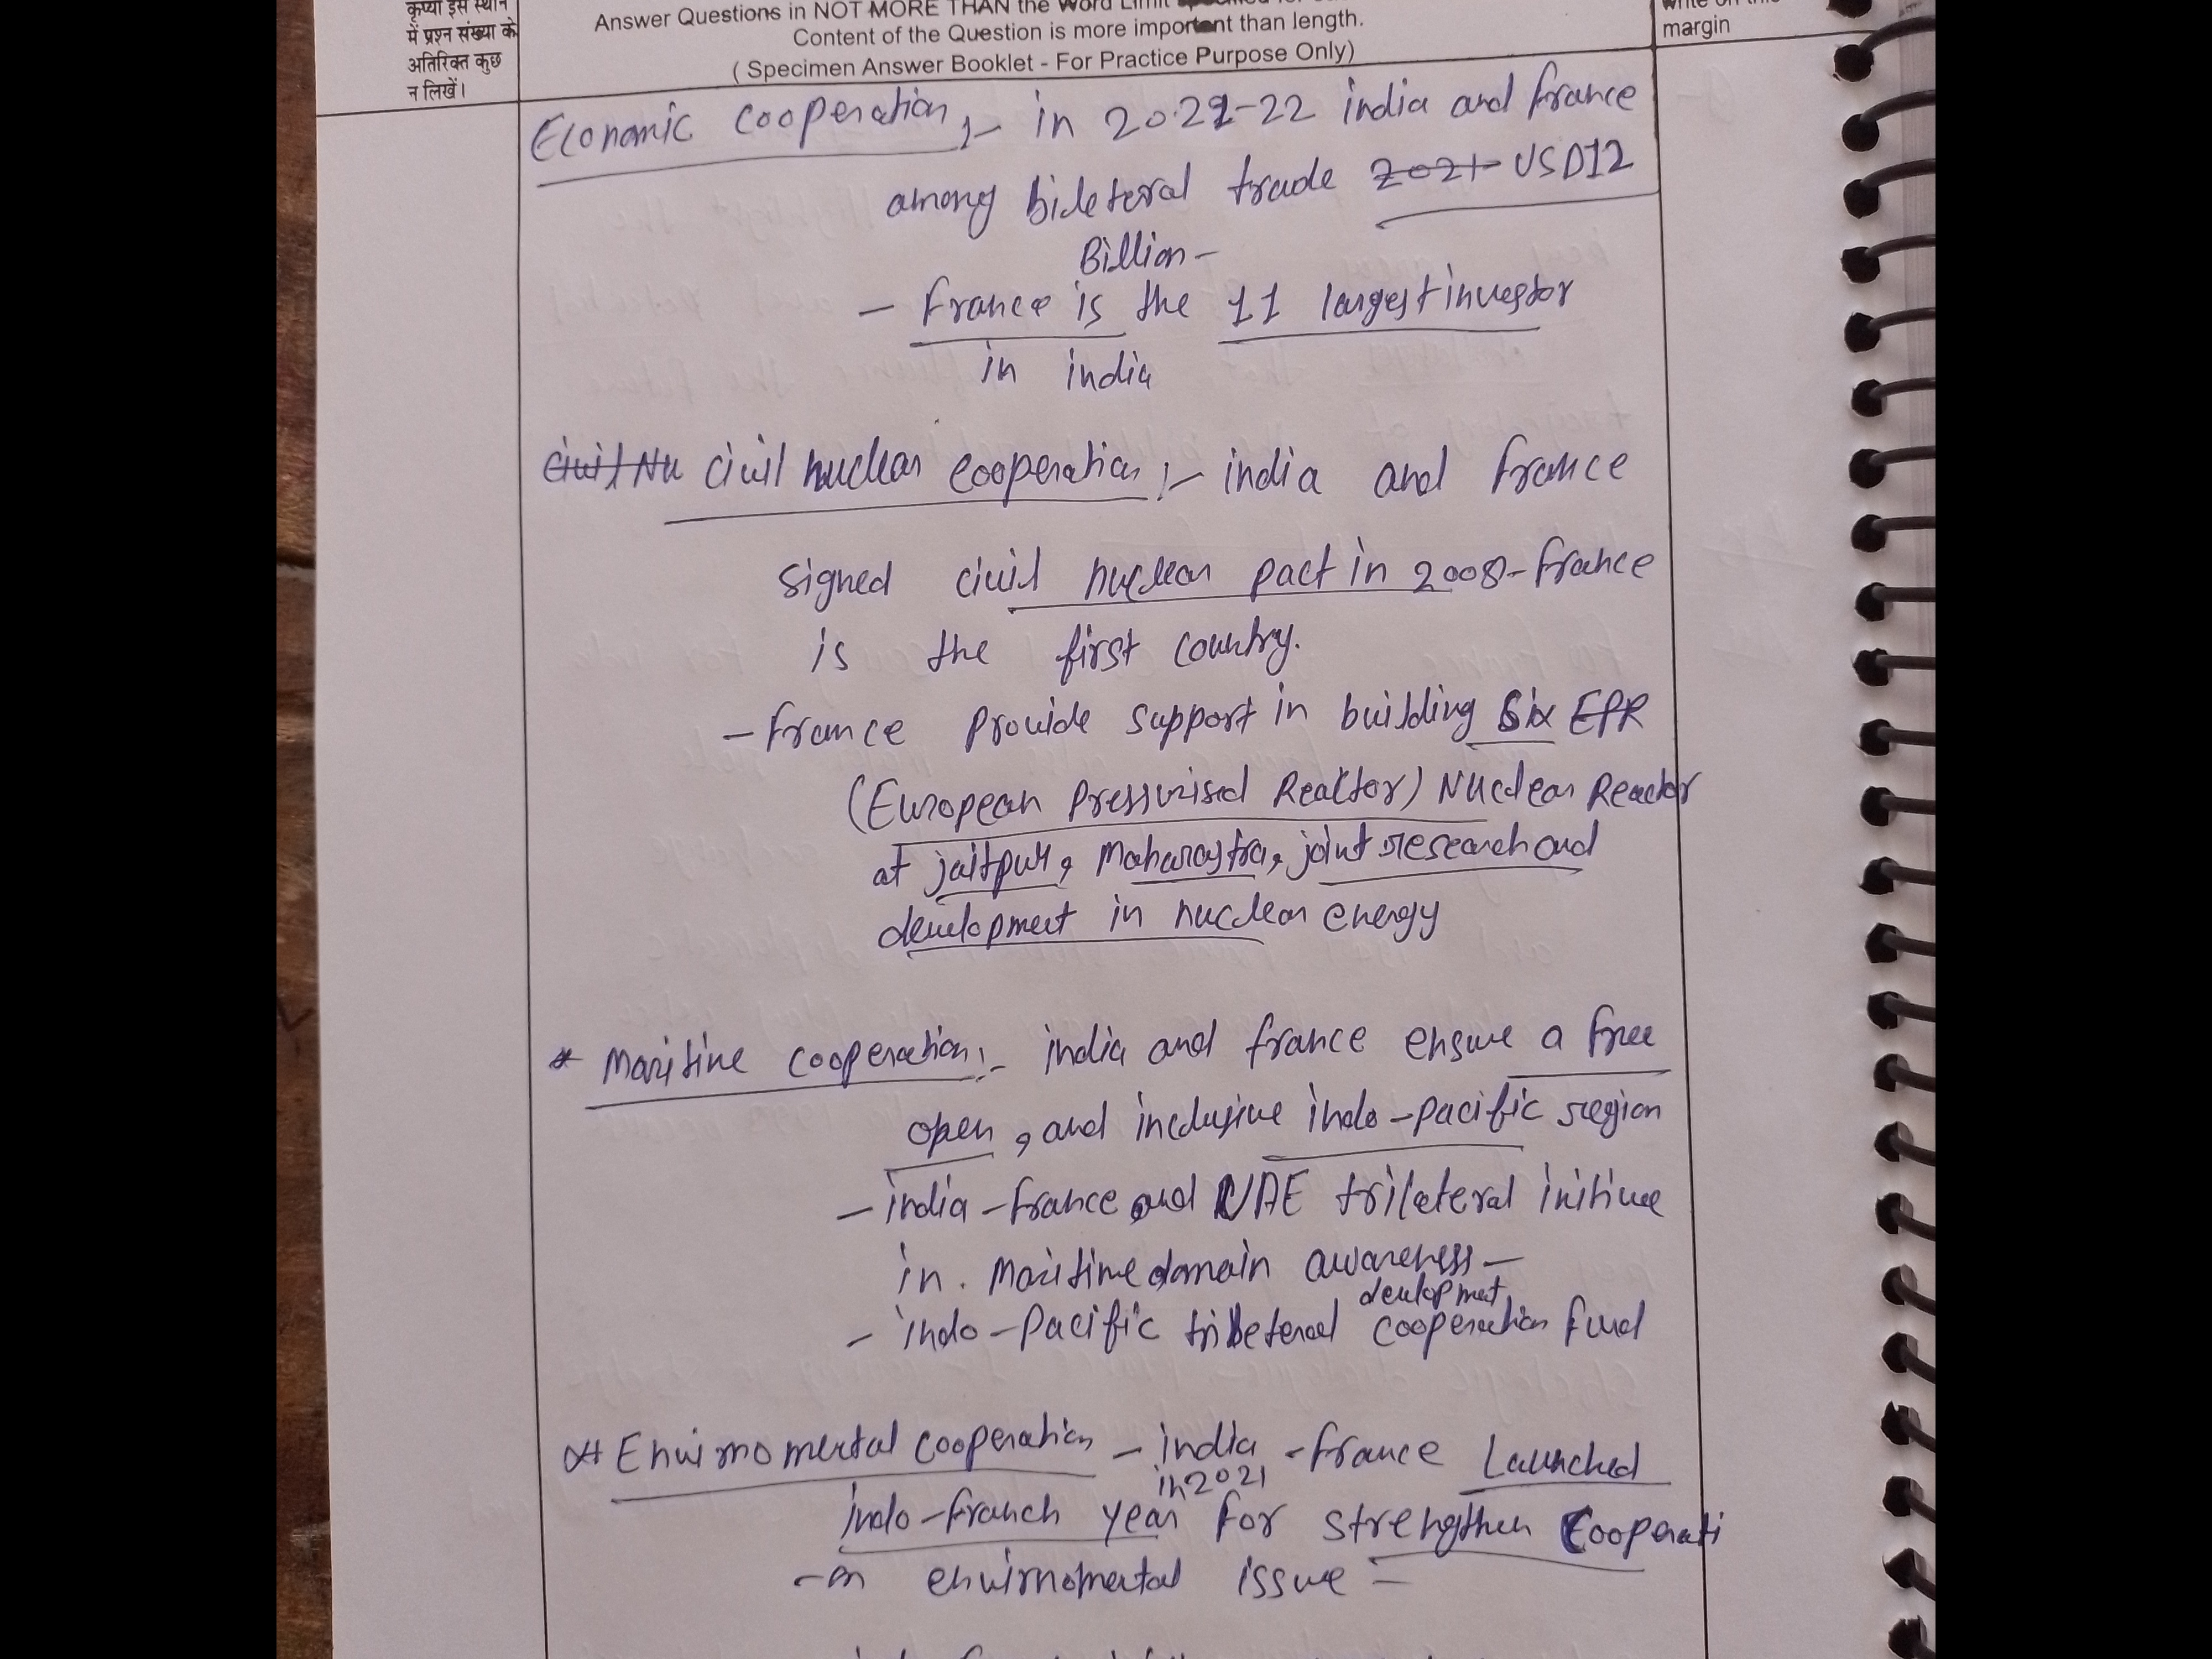 कृप्या इस स्थान
में प्रश्न संख्या के
अतिरिक्त कुछ
न लिखें।
Answer Questions in NOT MORE THAN the Word Limit
Content of the Question is more important than length.
( Specimen Answer Booklet - For Practice Purpose Only)
write on this
margin
Economic cooperation :- in 2021-22 india and france
among bileteral trade 2021- USD12
Billion -
- france is the 11 largest investor
in india
Civil Nu civil nuclear cooperation :- india and france
signed civil nuclear pact in 2008 - france
is the first country.
- france provide support in building Six EPR
(European Pressurised Realtor) Nuclear Reactor
at jaitpur, Maharastra, joint research and
development in nuclear energy
* Maritine cooperation :- india and france ensure a free
open, and inclusive indo-pacific region
- india - france and UAE trilateral initive
in. Maritime domain awareness -
development
- indo - Pacific trileteral cooperation fund
* Envirnomental cooperation - india - france Launched
in 2021
indo - franch year for strengthen Cooperati
-on envirnomental issue -